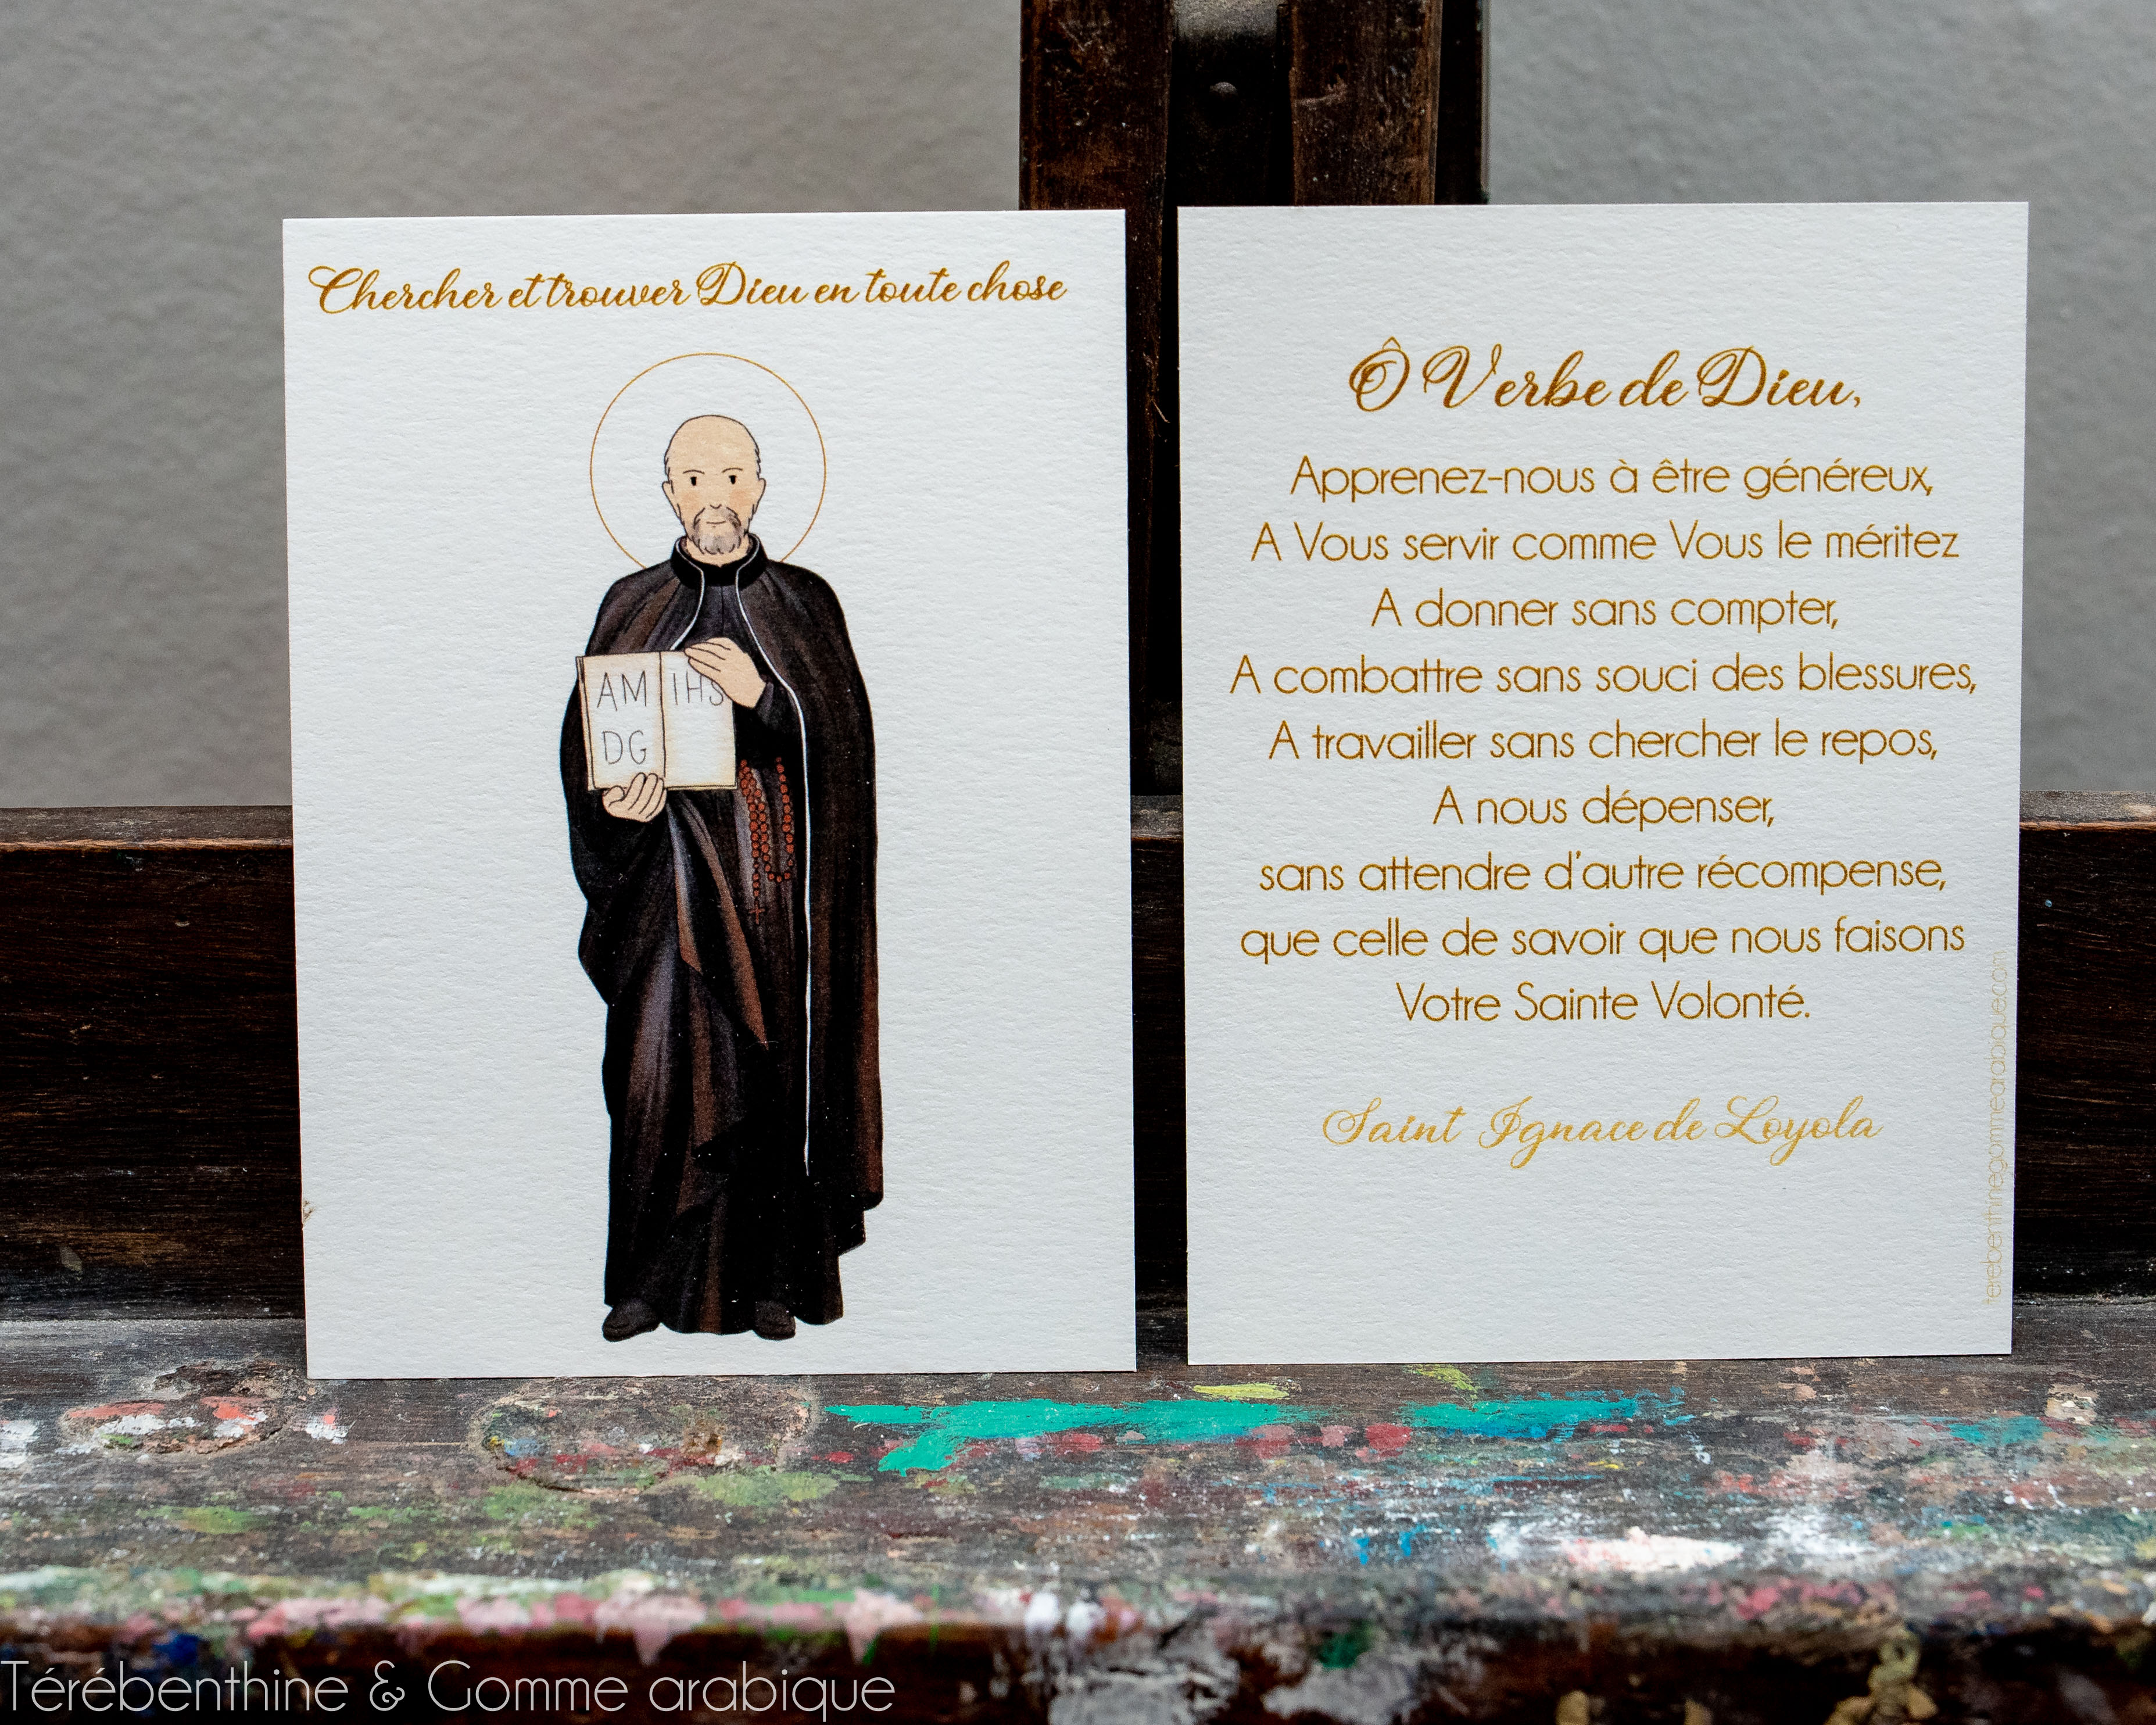 Chercher et trouver Dieu en toute chose
AM
DG
IHS
Ô Verbe de Dieu,
Apprenez-nous à être généreux,
A Vous servir comme Vous le méritez
A donner sans compter,
A combattre sans souci des blessures,
A travailler sans chercher le repos,
A nous dépenser,
sans attendre d'autre récompense,
que celle de savoir que nous faisons
Votre Sainte Volonté.
Saint Ignace de Loyola
terebenthinegommearabique.com
Térébenthine & Gomme arabique